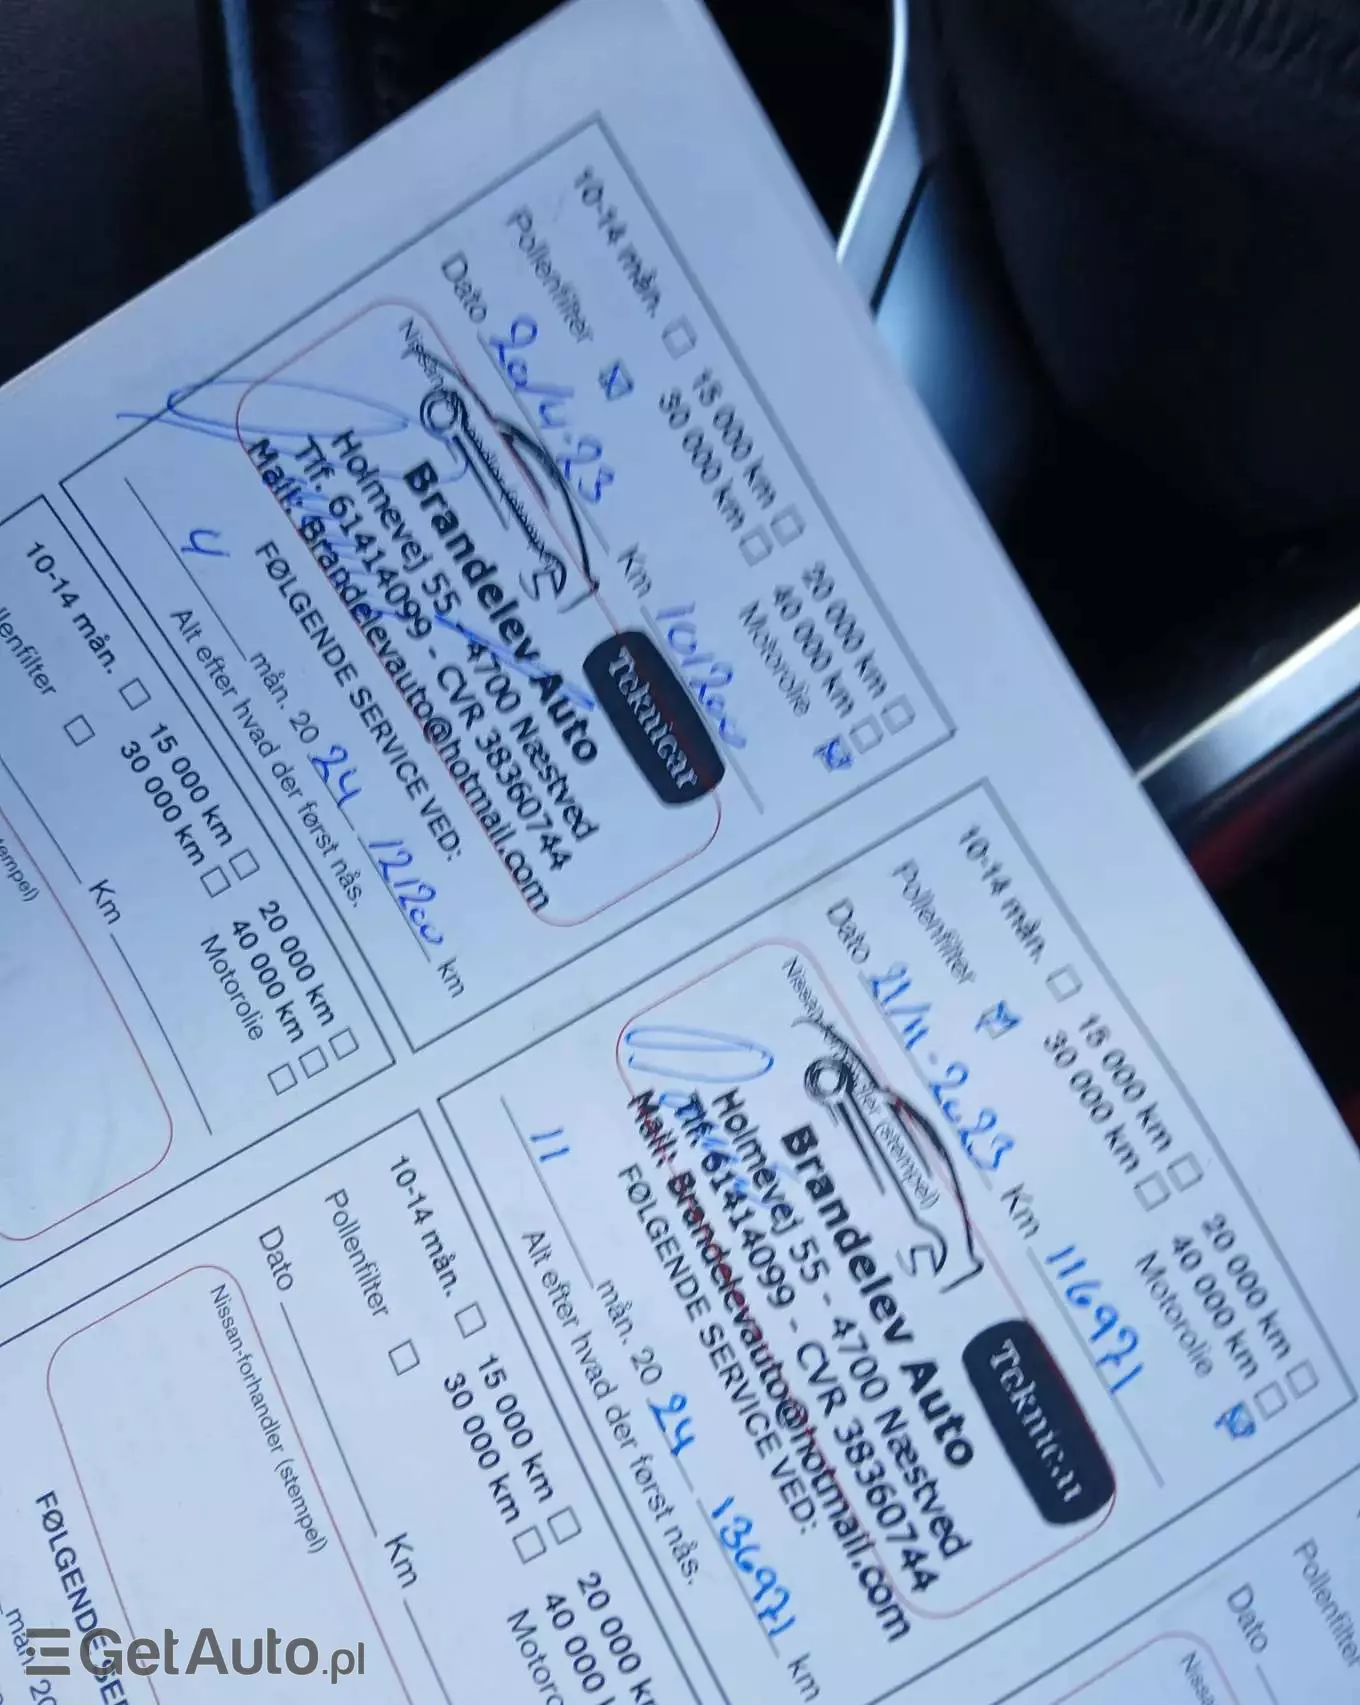 10-14 mån. 15 000 km 20 000 km
30 000 km 40 000 km
Pollenfilter Motorolie
Dato 20/4-23 Km 101200
Teknicar
Brandelev Auto
Holmevej 55 - 4700 Næstved
Tlf. 61414099 - CVR 38360744
Mail: Brandelevauto@hotmail.com
FØLGENDE SERVICE VED:
4 mån. 20 24 121200 km
Alt efter hvad der først nås.
10-14 mån. 15 000 km 20 000 km
30 000 km 40 000 km
Motorolie
Km
10-14 mån. 15 000 km 20 000 km
30 000 km 40 000 km
Pollenfilter Motorolie
Dato 21/11-2023 Km 116971
Nissan-forhandler (stempel)
Teknicar
Brandelev Auto
Holmevej 55 - 4700 Næstved
Tlf. 61414099 - CVR 38360744
Mail: Brandelevauto@hotmail.com
FØLGENDE SERVICE VED:
11 mån. 20 24 136971 km
Alt efter hvad der først nås.
10-14 mån. 15 000 km 20 000 km
30 000 km 40 000 km
Pollenfilter
Dato Km
Nissan-forhandler (stempel)
FØLGENDE
mån. 20
Pollenfilter
Dato
GetAuto.pl